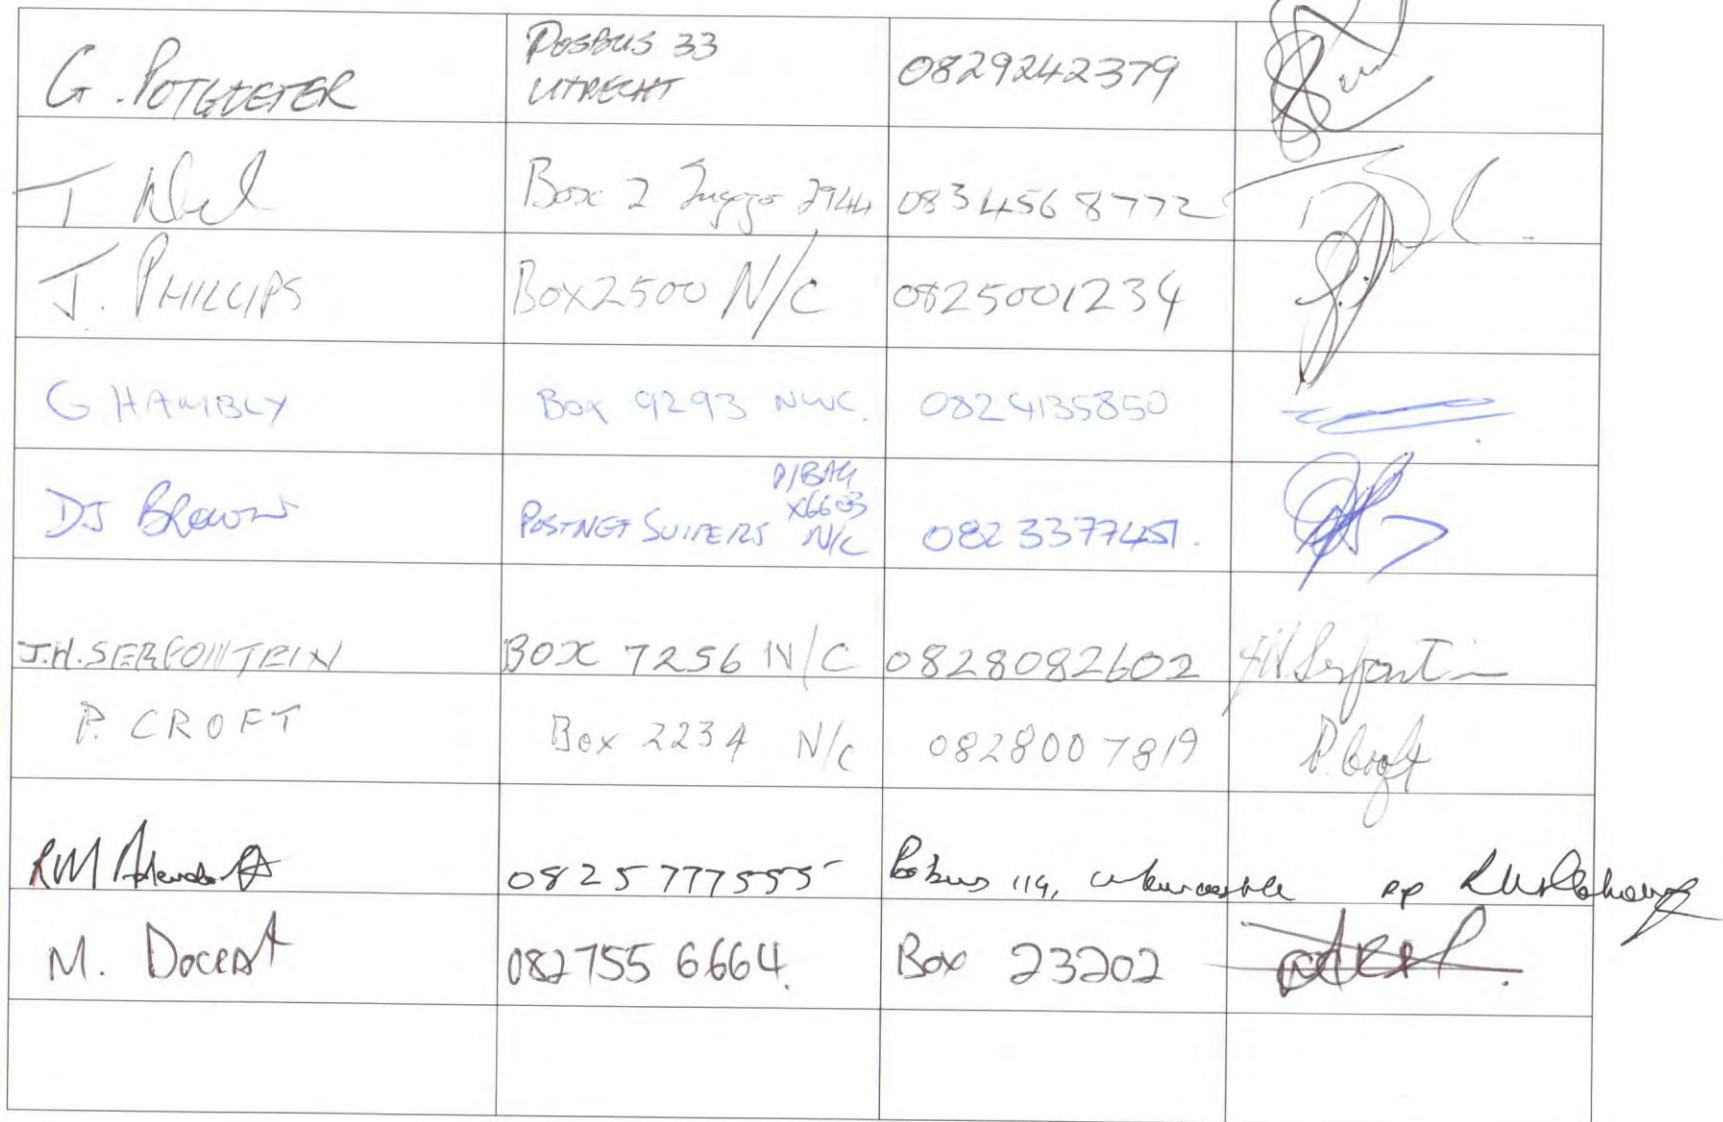 G. POTGIETER POSBUS 33 UTRECHT 0829242379
T Nel Box 2 2944 0834568772
J. PHILLIPS Box 2500 N/C 0825001234
G HAMBLY Box 9293 NWC. 0824135850
DJ Brown POSTNET P/BAG X6603 N/C 082 3377451.
J.H. SERFONTEIN BOX 7256 N/C 0828082602 JH Serfontein
P. CROFT Box 2234 N/C 0828007819 P. Croft
RM 0825777555 Posbus 119, pp
M. 082755 6664. Box 23202